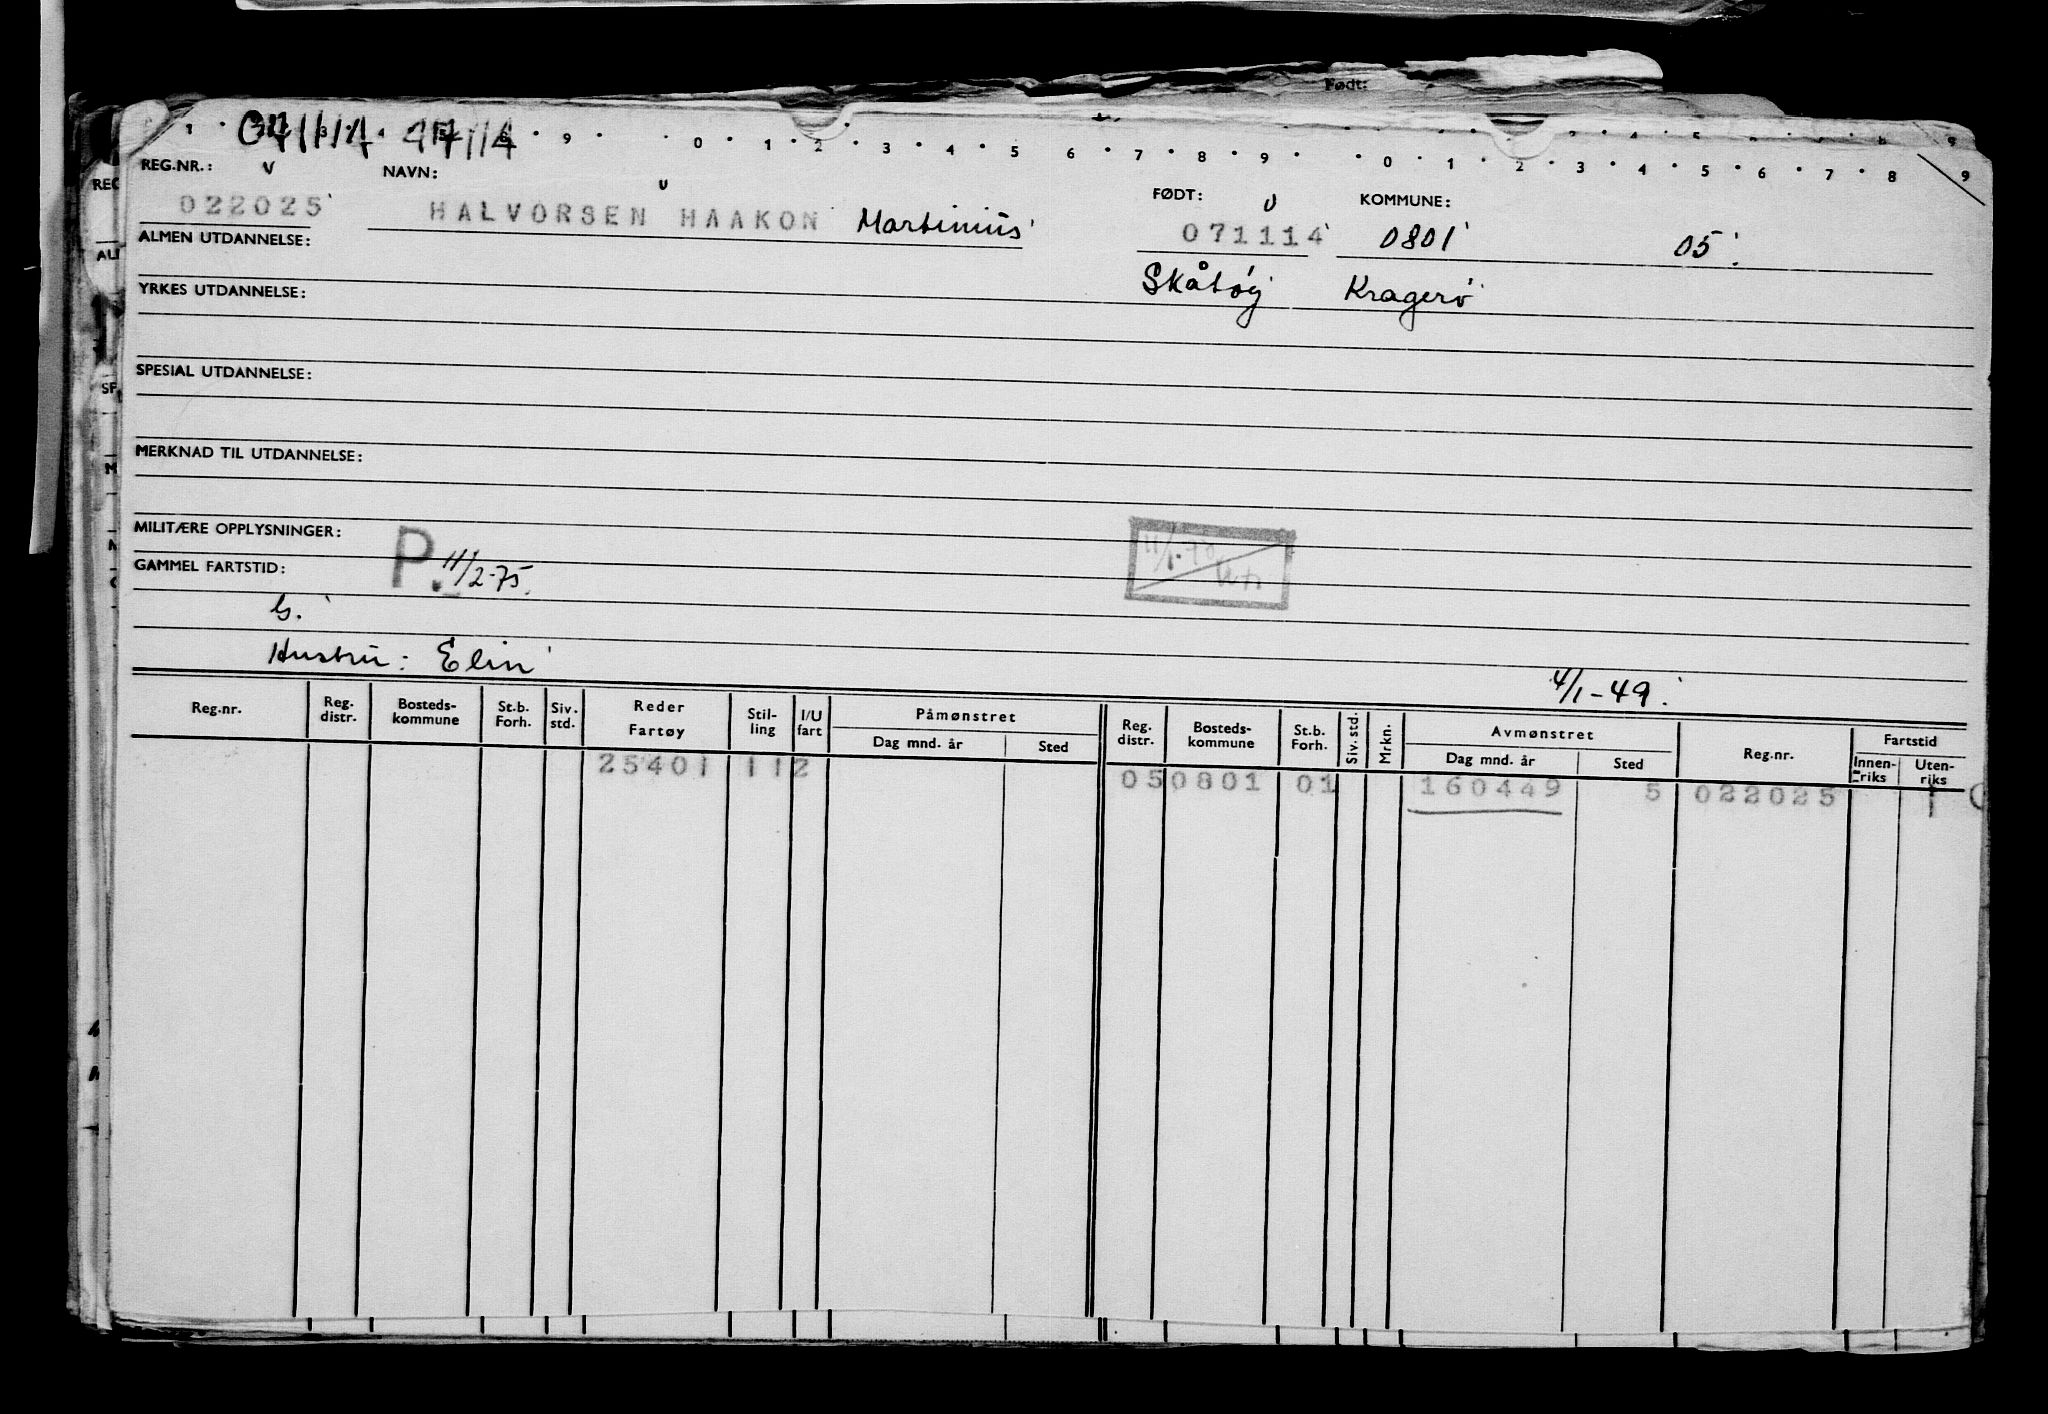 Født:
071114 47114
1 . 3 . 9 . 0 . 1 . 2 . 3 . 4 . 5 6 . 7 . 8 . 9 . . 0 . 1 . 2 . 3 . 4 . 5 . 6 . 7 . 8 9
REG.NR.: NAVN: FØDT: KOMMUNE:
022025 HALVORSEN HAAKON Martinius 071114 0801 05.
ALMEN UTDANNELSE:
Skåtøy Kragerø
YRKES UTDANNELSE:
SPESIAL UTDANNELSE:
MERKNAD TIL UTDANNELSE:
MILITÆRE OPPLYSNINGER:
P. 11/2-75.
GAMMEL FARTSTID:
G.
Hustru: Elin
4/1-49.
Reg.nr. Reg. distr. Bosteds-kommune St.b. Forh. Siv. std. Reder Fartøy Stil-ling I/U fart Påmønstret Dag mnd. år Sted Reg. distr. Bosteds-kommune St.b. Forh. Siv. std. Mrkn. Avmønstret Dag mnd. år Sted Reg.nr. Fartstid Innen-riks Uten-riks
25401 112 050801 01 160449 5 022025 1